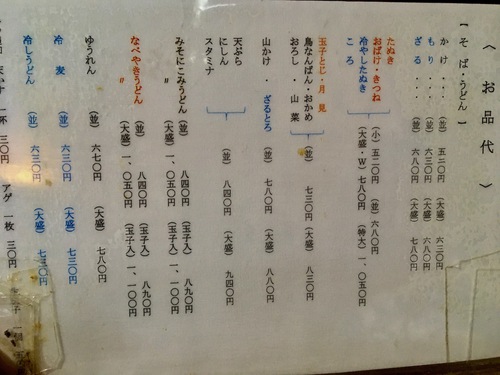 〈 お 品 代 〉
【 そ ば ・ うどん 】
かけ ・・ (並) 五三〇円 (大盛) 六三〇円
もり ・・ (並) 六三〇円 (大盛) 六八〇円
ざる ・・ (並) 六八〇円 (大盛) 七八〇円
たぬき
おばけ・きつね
冷やしたぬき
ころ
(小) 五二〇円 (並) 六八〇円
(大盛・W) 七八〇円 (特大) 一、〇五〇円
玉子とじ・月 見
鳥なんばん・おかめ
おろし ・ 山 菜
(並) 七三〇円 (大盛) 八三〇円
山かけ ・ ざるとろ (並) 七八〇円 (大盛) 八八〇円
天ぷら
にしん
スタミナ
(並) 八四〇円 (大盛) 九四〇円
みそにこみうどん (並) 八四〇円 (玉子入) 八九〇円
〃 (大盛) 一、〇五〇円 (玉子入) 一、一〇〇円
なべやきうどん (並) 八四〇円 (玉子入) 八九〇円
〃 (大盛) 一、〇五〇円 (玉子入) 一、一〇〇円
ゆうれん (並) 六七〇円 (大盛) 七八〇円
冷 麦 (並) 六三〇円 (大盛) 七三〇円
冷しうどん (並) 六三〇円 (大盛) 七三〇円
一杯 三〇円 アゲ 一枚 三〇円